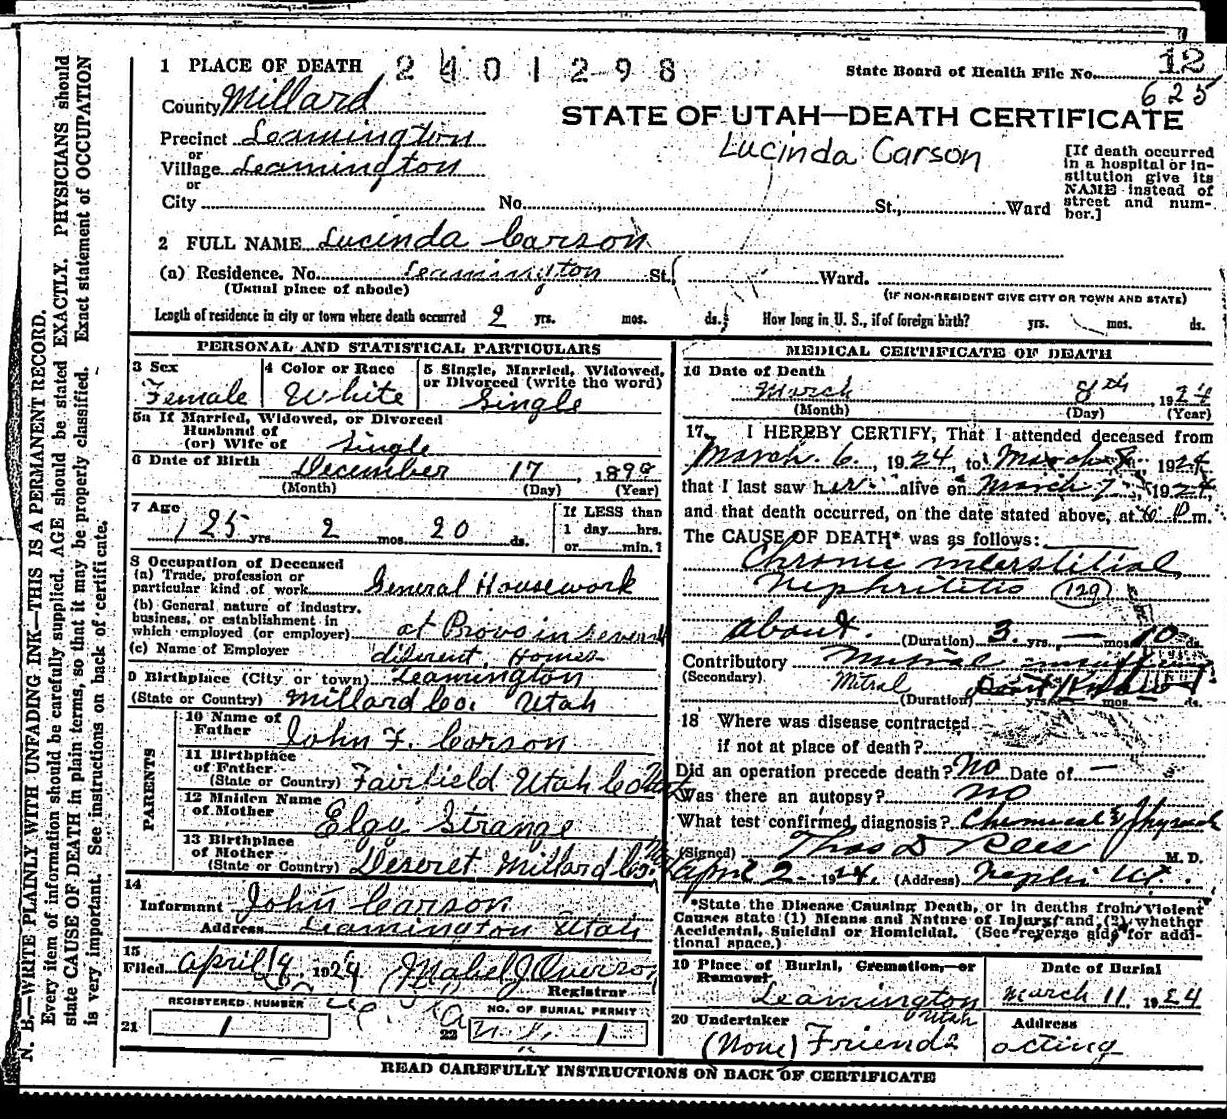 1 PLACE OF DEATH 2401298 State Board of Health File No. 12
625
County Millard
STATE OF UTAH—DEATH CERTIFICATE
Precinct Leamington
Lucinda Carson
or
Village Leamington
or
City No. St., Ward
[If death occurred
in a hospital or in-
stitution give its
NAME instead of
street and num-
ber.]
2 FULL NAME Lucinda Carson
(a) Residence. No. Leamington St. Ward.
(Usual place of abode) (IF NON-RESIDENT GIVE CITY OR TOWN AND STATE)
Length of residence in city or town where death occurred 2 yrs. mos. ds. How long in U. S., if of foreign birth? yrs. mos. ds.
PERSONAL AND STATISTICAL PARTICULARS
3 Sex
Female
4 Color or Race
White
5 Single, Married, Widowed,
or Divorced (write the word)
Single
5a If Married, Widowed, or Divorced
Husband of
(or) Wife of Single
6 Date of Birth December 17, 1898
(Month) (Day) (Year)
7 Age
25 yrs. 2 mos. 20 ds.
If LESS than
1 day hrs.
or min.?
8 Occupation of Deceased
(a) Trade, profession or
particular kind of work General Housework
(b) General nature of industry,
business, or establishment in
which employed (or employer) at Provo in several
(c) Name of Employer diferent Homes
9 Birthplace (City or town) Leamington
(State or Country) Millard Co. Utah
PARENTS
10 Name of
Father John F. Carson
11 Birthplace
of Father
(State or Country) Fairfield Utah Co Utah
12 Maiden Name
of Mother Elgy Strange
13 Birthplace
of Mother
(State or Country) Deseret Millard Co.
14
Informant John Carson
Address Leamington Utah
15
Filed April 1924 Mabel J Overson
Registrar
REGISTERED NUMBER
21 1
NO. OF BURIAL PERMIT
22 1
MEDICAL CERTIFICATE OF DEATH
16 Date of Death
March 8th 1924
(Month) (Day) (Year)
17 I HEREBY CERTIFY, That I attended deceased from
March 6, 1924, to March 8, 1924
that I last saw her alive on March 7, 1924,
and that death occurred, on the date stated above, at m.
The CAUSE OF DEATH* was as follows:
Chronic interstitial
Nephritis 129
about (Duration) 3 yrs. — mos. 10 ds.
Contributory Mitral
(Secondary) Mitral
(Duration) yrs. mos. ds.
18 Where was disease contracted
if not at place of death?
Did an operation precede death? No Date of —
Was there an autopsy? no
What test confirmed diagnosis? Chemical &
(Signed) Thos D Rees M. D.
April 2 1924. (Address) Nephi Ut.
*State the Disease Causing Death, or in deaths from Violent
Causes state (1) Means and Nature of Injury and (2) whether
Accidental, Suicidal or Homicidal. (See reverse side for addi-
tional space.)
19 Place of Burial, Cremation, or
Removal
Leamington
Utah
Date of Burial
March 11, 1924
20 Undertaker
(None) Friends
Address
acting
READ CAREFULLY INSTRUCTIONS ON BACK OF CERTIFICATE
N. B.—WRITE PLAINLY WITH UNFADING INK—THIS IS A PERMANENT RECORD.
Every item of information should be carefully supplied. AGE should be stated EXACTLY. PHYSICIANS should
state CAUSE OF DEATH in plain terms, so that it may be properly classified. Exact statement of OCCUPATION
is very important. See instructions on back of certificate.